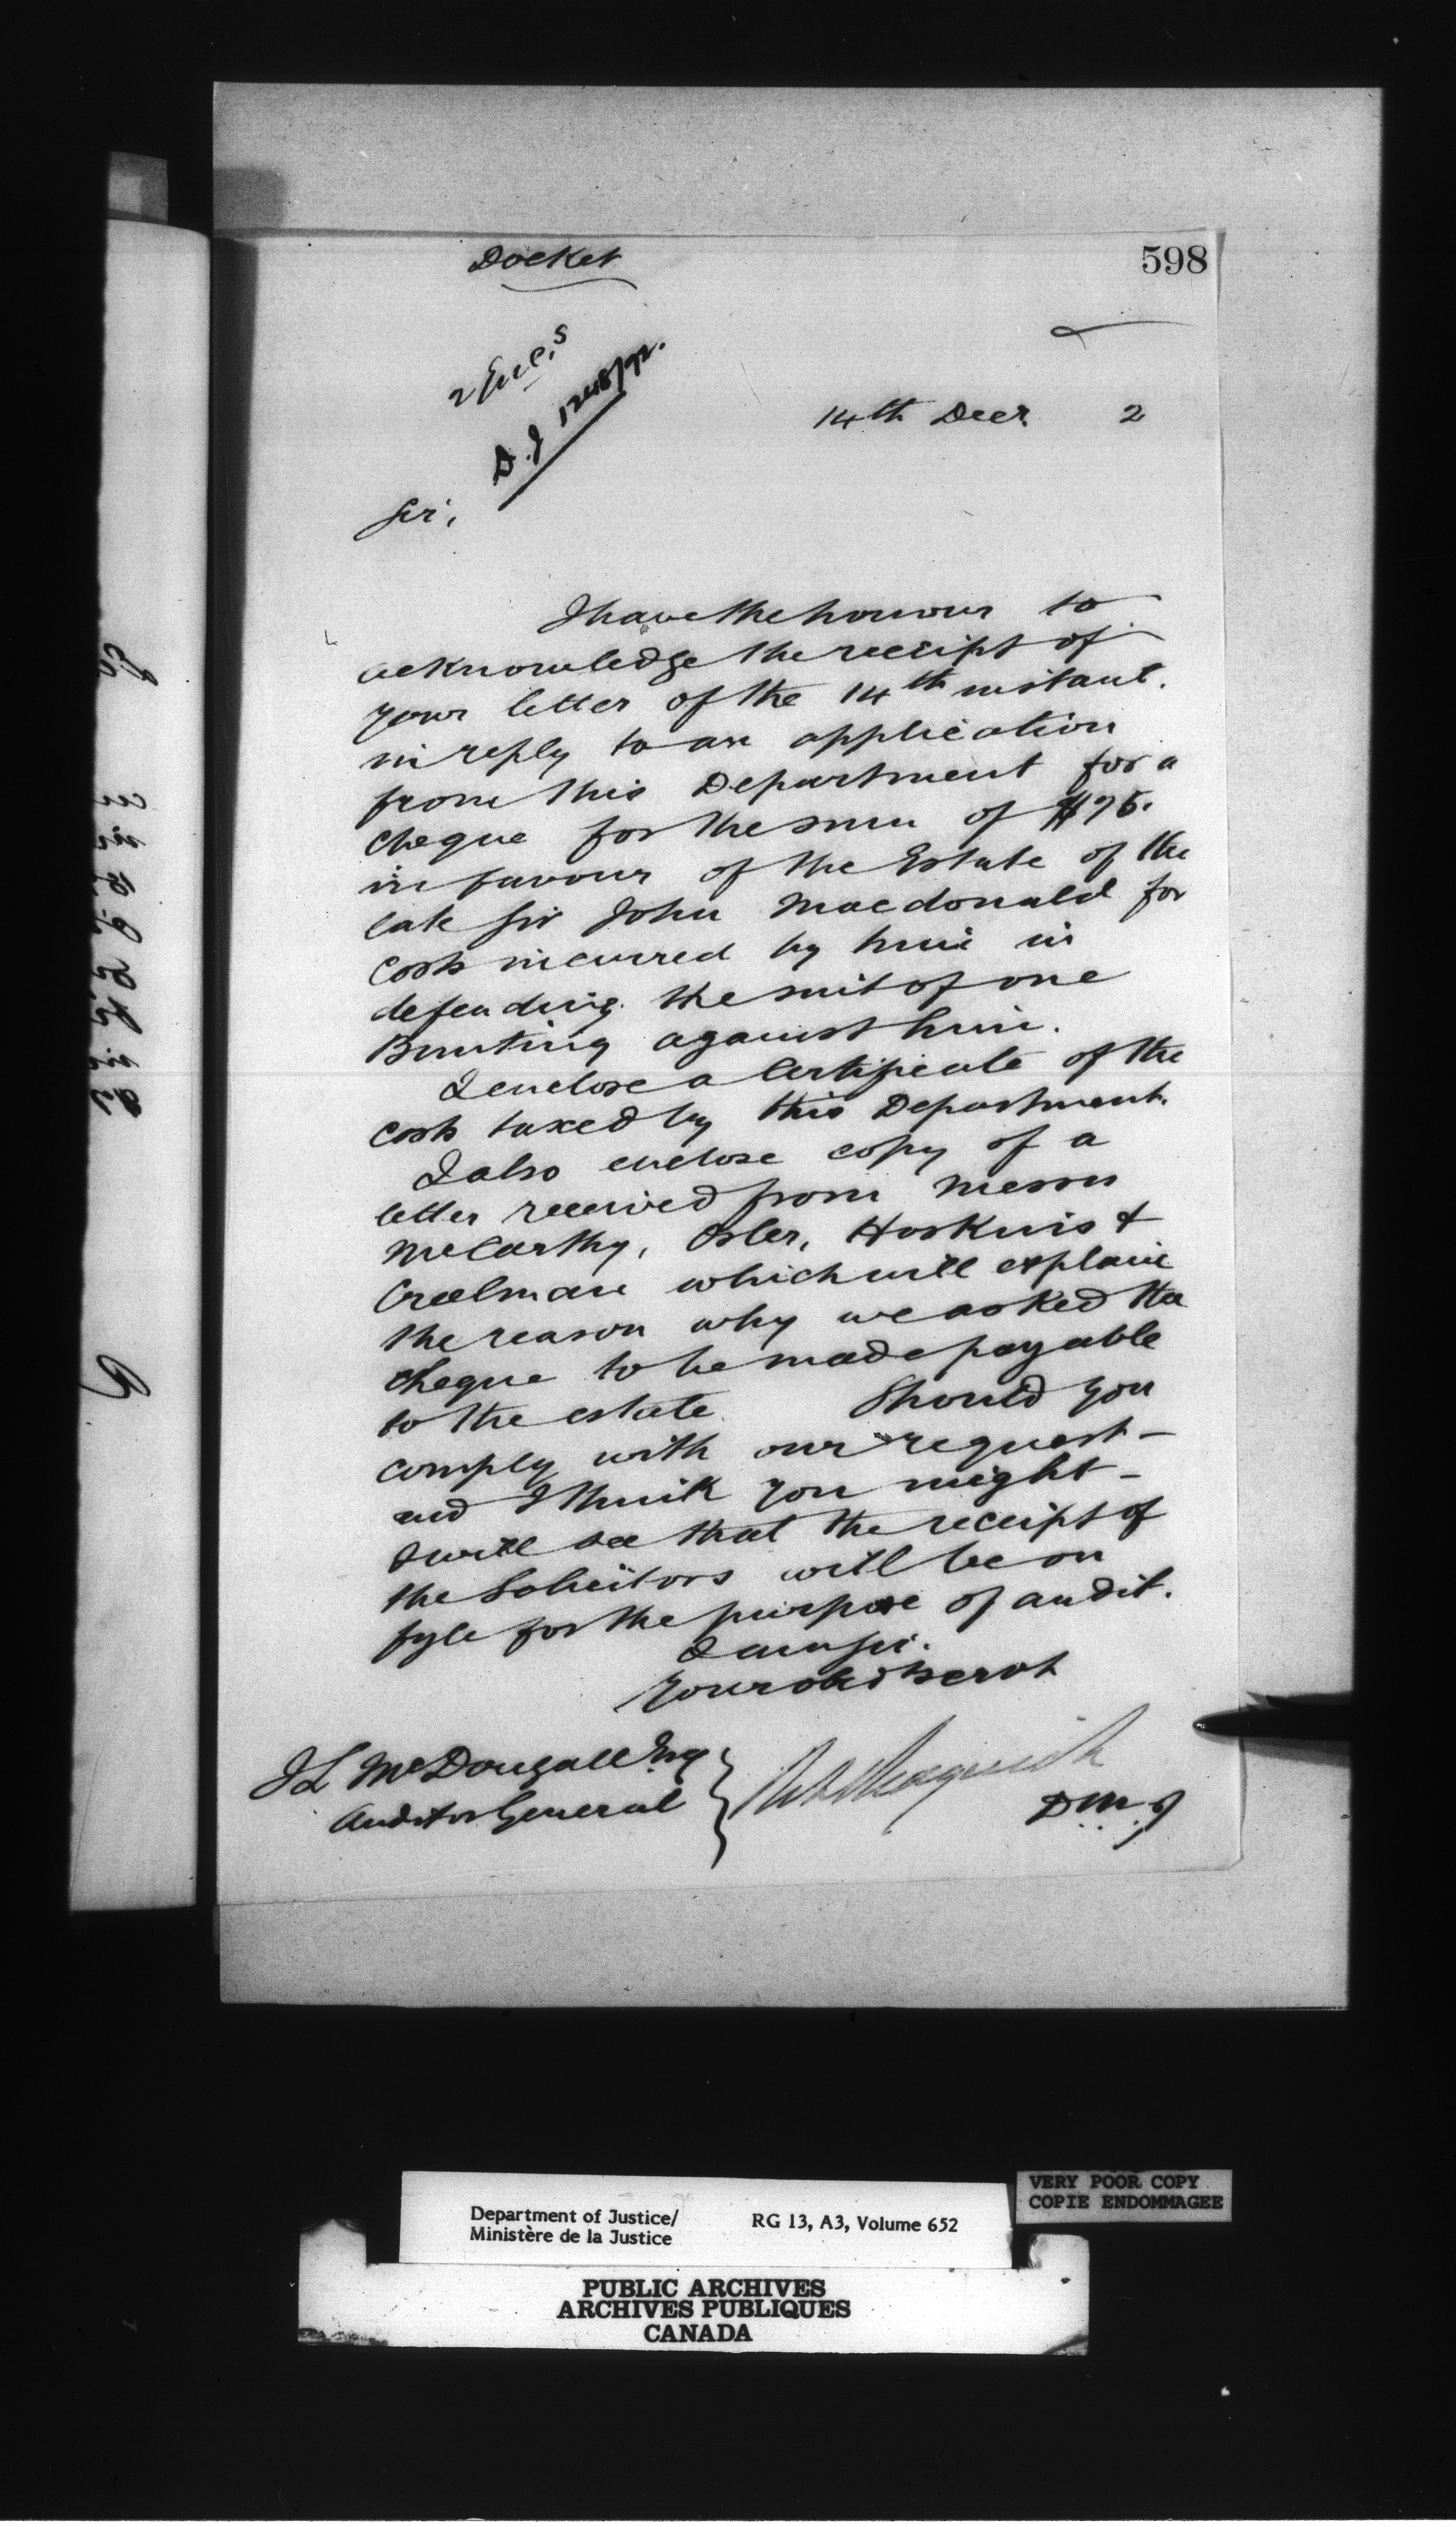 Docket
598
2 Encs
D.J 1248/92.
14th Decr 2
Sir,
I have the honour to
acknowledge the receipt of
your letter of the 14th instant.
in reply to an application
from this Department for a
cheque for the sum of
in favour of the Estate of the
late Sir John Macdonald for
costs incurred by him in
defending the suit of one
Bunting against him.
I enclose a Certificate of the
costs taxed by this Department.
I also enclose copy of a
letter received from Messrs
McCarthy, Osler, Hoskins &
Creelman which will explain
the reason why we asked the
cheque to be made payable
to the estate. Should you
comply with our request -
and I think you might -
I will see that the receipt of
the Solicitors will be on
fyle for the purpose of audit.
I am Sir.
Your obdt servt
J L McDougall Esq
Auditor General
D.M.J
Department of Justice/
Ministère de la Justice
RG 13, A3, Volume 652
VERY POOR COPY
COPIE ENDOMMAGEE
PUBLIC ARCHIVES
ARCHIVES PUBLIQUES
CANADA